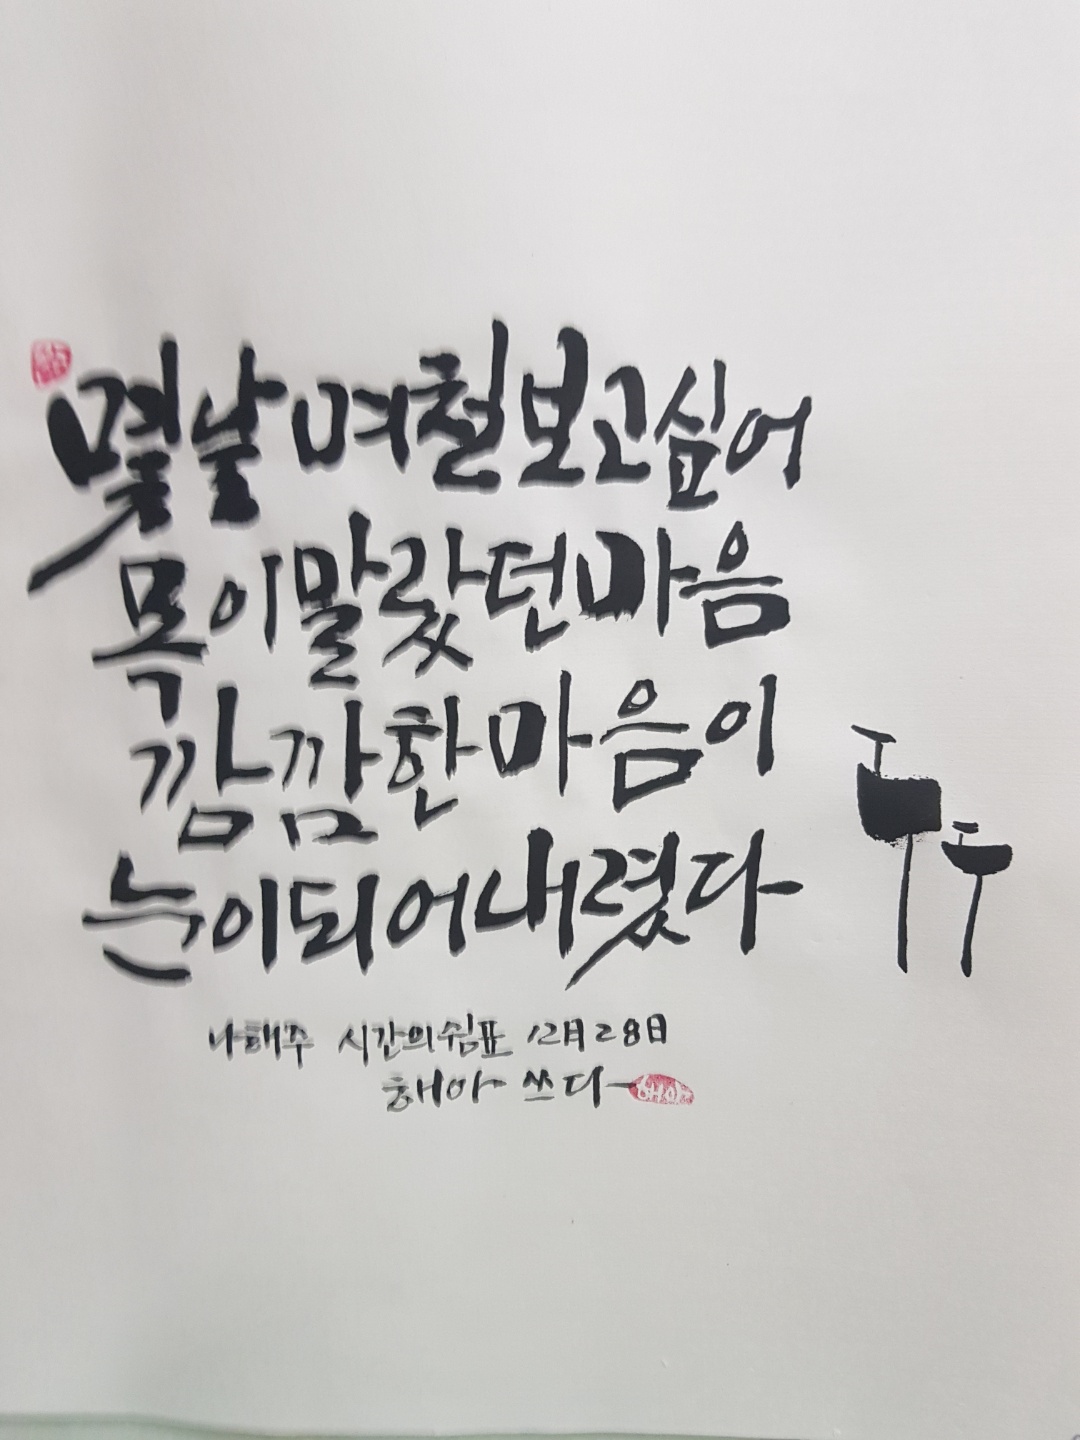 몇날 며칠 보고싶어
목이 말랐던 마음
깜깜한 마음이
눈이 되어 내렸다
나태주 시간의쉼표 12月28日
해아 쓰다 해아